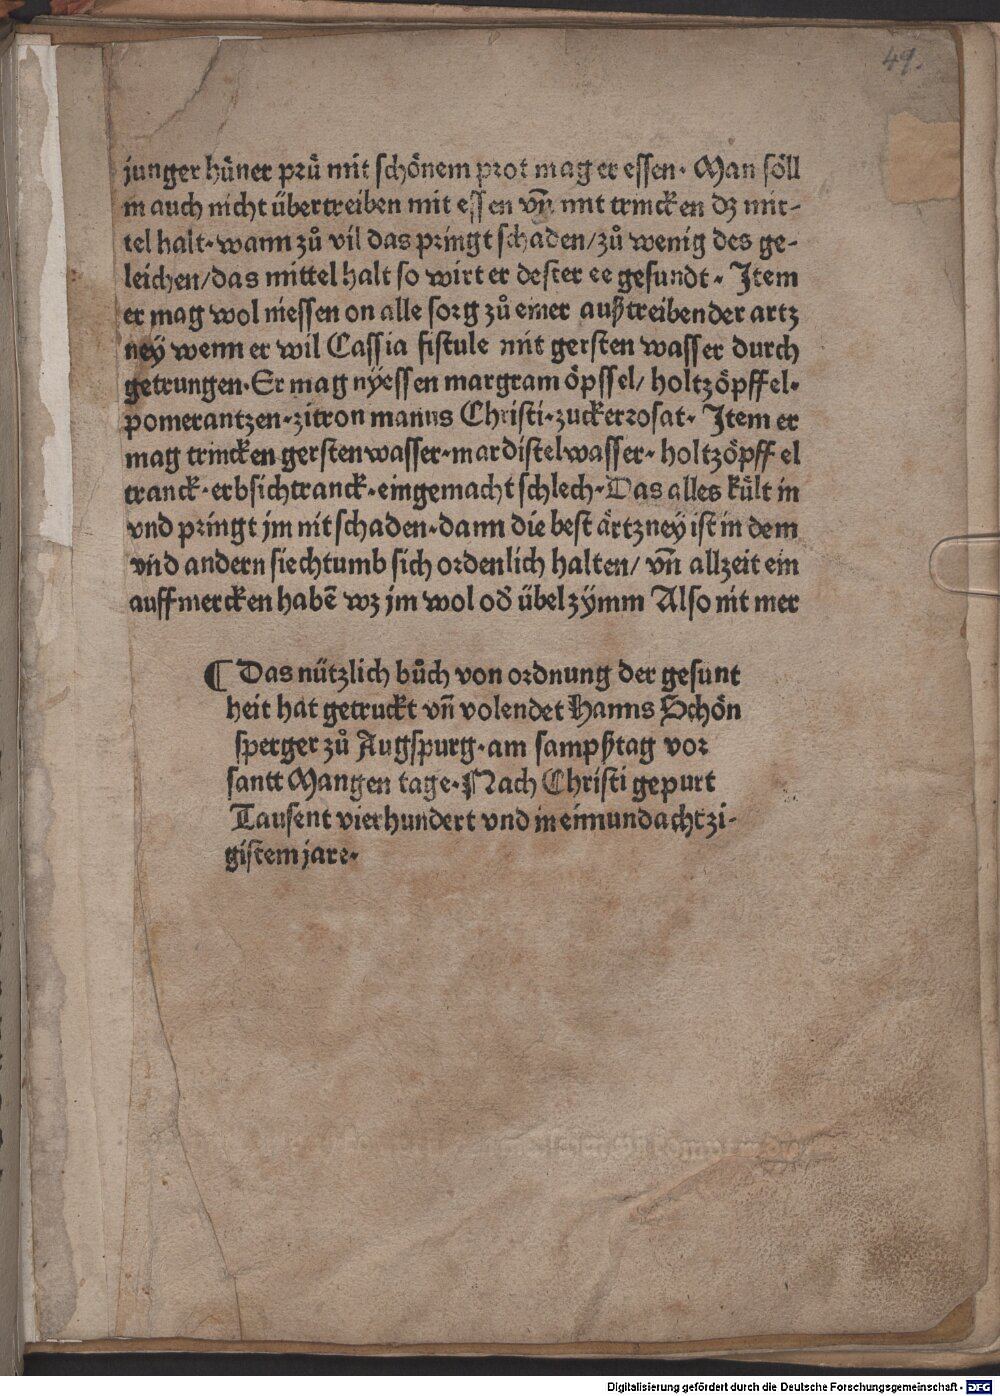 49.
junger hüner prü mit schönem prot mag er essen· Man söll
in auch nicht übertreiben mit essen vn̄ mit trincken dz mit-
tel halt· wann zů vil das pringt schaden/zů wenig des ge-
leichen/das mittel halt so wirt er dester ee gesundt· Item
er mag wol niessen on alle sorg zů einer außtreibender artz
ney wenn er wil Cassia fistule mit gersten wasser durch
getrungen· Er mag nÿessen margram öpssel/ holtzöpffel·
pomerantzen·zitron manus Christi·zuckerrosat· Item er
mag trincken gerstenwasser·mardistelwasser· holtzöpffel
tranck·erbsichtranck·eingemacht schlech·Das alles kült in
vnd pringt jm nit schaden·dann die best ärtzney ist in dem
vnd andern siechtumb sich ordenlich halten/ vn̄ allzeit ein
auffmercken habē wz jm wol od̄ übel zÿmm Also nit mer
¶ Das nützlich bůch von ordnung der gesunt
heit hat getruckt vn̄ volendet Hanns Schön
sperger zů Augspurg·am sampßtag vor
santt Mangen tage·Nach Christi gepurt
Tausent vierhundert vnd in einundachtzi-
gistem jare·
Digitalisierung gefördert durch die Deutsche Forschungsgemeinschaft - DFG